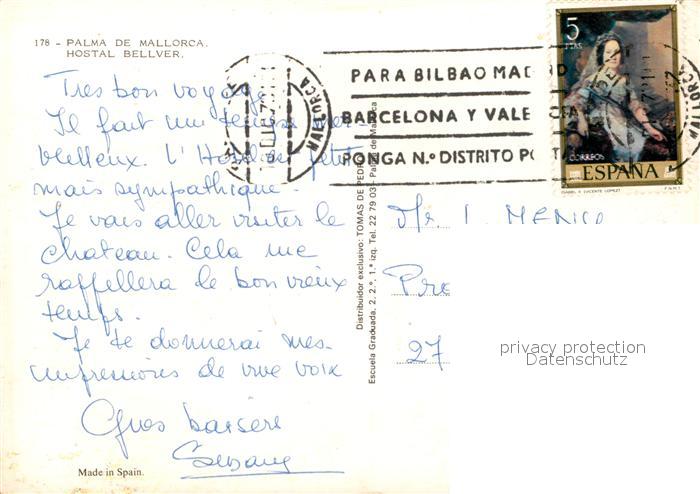 178 - PALMA DE MALLORCA.
HOSTAL BELLVER.
Tres bon voyage.
Il fait un temps mer
veilleux. L'Hostal petit
mais sympathique.
Je vais aller visiter le
chateau. Cela me
rappellera le bon vieux
temps.
Je te donnerai mes
impressions de vive voix
Gros baisers
Made in Spain.
Distribuidor exclusivo: TOMAS DE PEDRO
Escuela Graduada, 2. 2.º, 1.ª izq. Tel. 22 79 03 - Palma de Mallorca
PARA BILBAO MAD
BARCELONA Y VALE CIA
PONGA N.º DISTRITO POSTA
5
PTAS
CORREOS
ESPAÑA
ISABEL II (VICENTE LOPEZ)
F.N.M.T.
Mr I. MENICO
Pr
27
privacy protection
Datenschutz